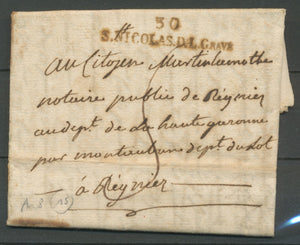 30
S.NICOLAS.D.L.GRAVE
Au Citoyen Martin Lamothe
notaire public de Reynier
au dept. de La haute garonne
par montauban dept du Lot
à Reynier